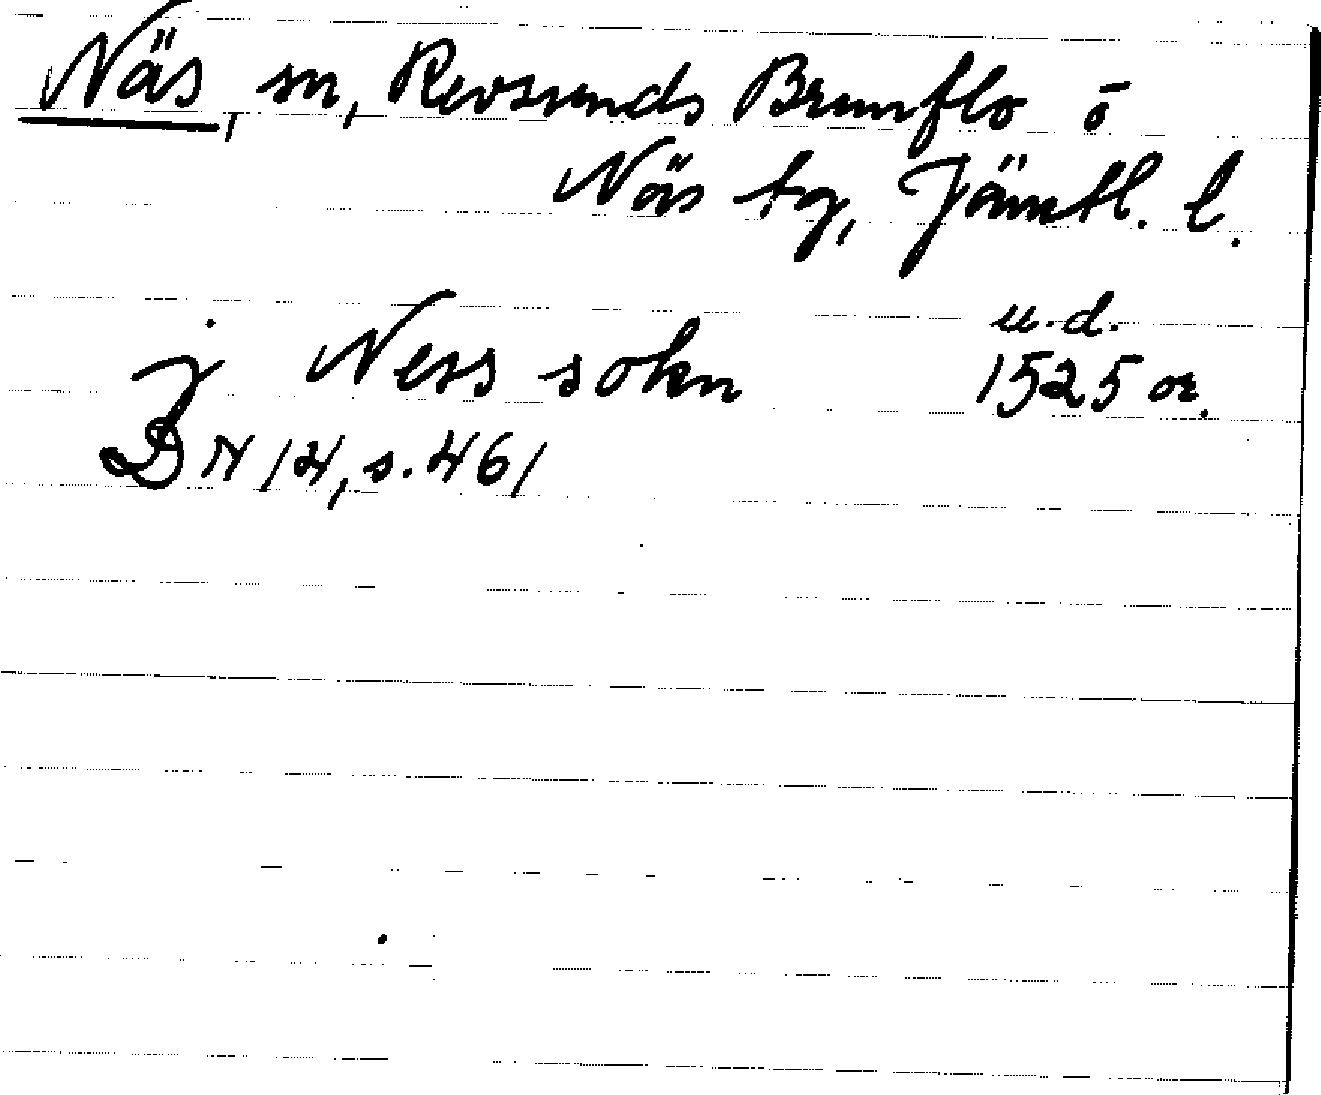 Näs, sn, Revsunds Brunflo o
Näs tg, Jämtl. l.
j Ness sokn u.d. 1525 or.
DN 14, s. 461